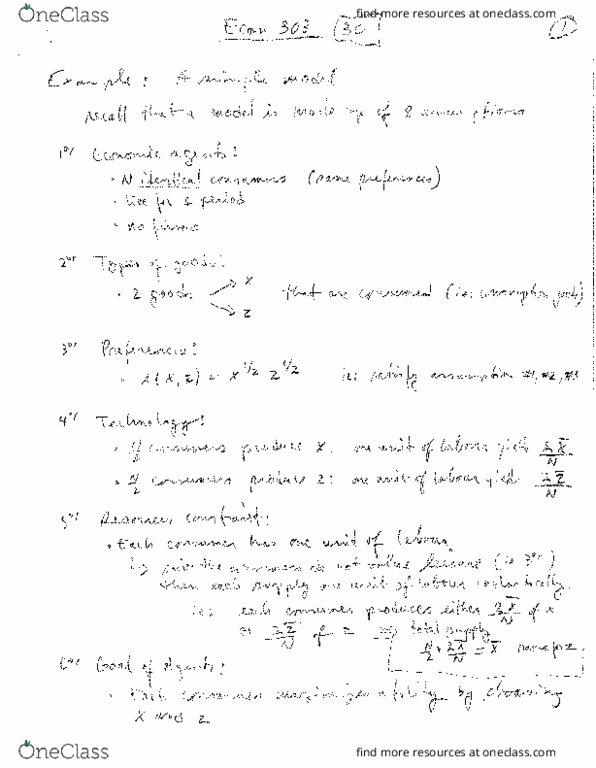 OneClass
find more resources at oneclass.com
Econ 303 3C 1
Example: A simple model
recall that a model is made up of 8 assumptions
1°/ Economic agents:
• N identical consumers (same preferences)
• live for 1 period
• no firms
2°/ Types of goods:
• 2 goods X
Z
that are consumed (ie: consumption goods)
3°/ Preferences:
(X, Z) = X^1/2 Z^1/2 ie: satisfy assumption #1, #2, #3
4°/ Technology:
• N/2 consumers produce X: one unit of labour yield 2X̄/N
• N/2 consumers produce Z: one unit of labour yield 2Z̄/N
5°/ Resource constraint:
• Each consumer has one unit of labour
consumers do not value leisure (in 3°/)
then each supply one unit of labour inelastically
ie: each consumer produces either 2X̄/N of X
or 2Z̄/N of Z ⇒ total supply
N/2 * 2X̄/N = X̄ same for Z
6°/ Goal of Agents:
• Each consumer maximizes utility by choosing
X and Z
OneClass
find more resources at oneclass.com